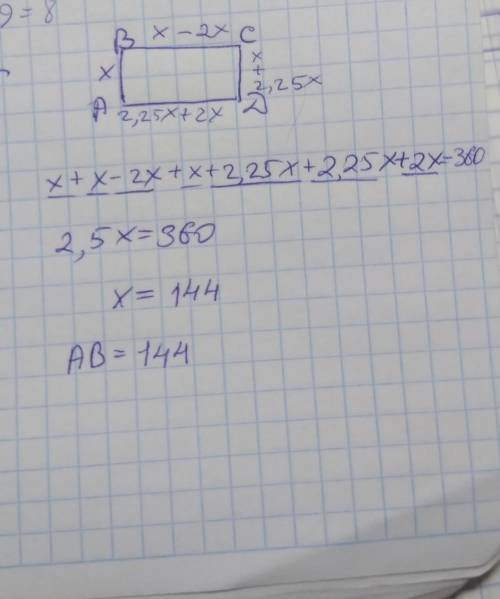 9 = 8
B x - 2x C
x x + 2,25x
A 2,25x + 2x D
x + x - 2x + x + 2,25x + 2,25x + 2x = 360
2,5x = 360
x = 144
AB = 144